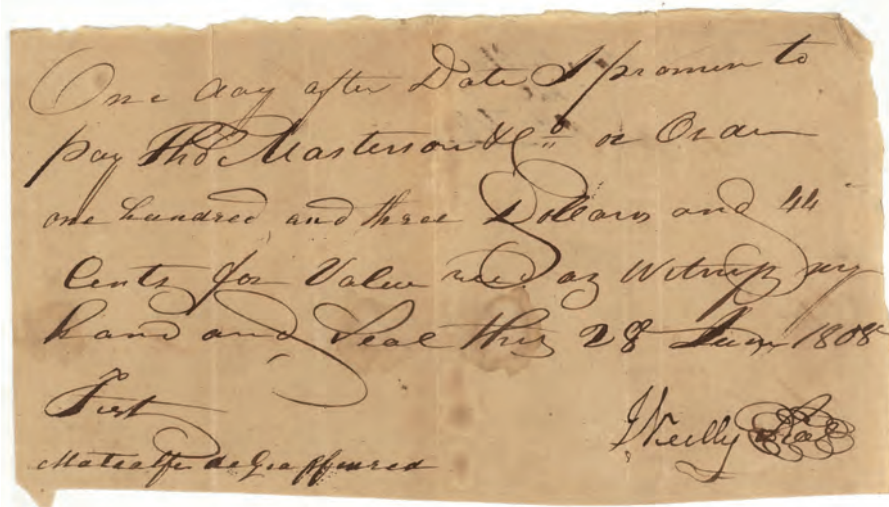 One day after Date I promise to
pay Tho Masterson & Co. or Order
one hundred and three Dollars and 44
Cents for Value recd as Witness my
hand and Seal this 28 June 1808
Test
Metcalfe de Graffenried
Seal